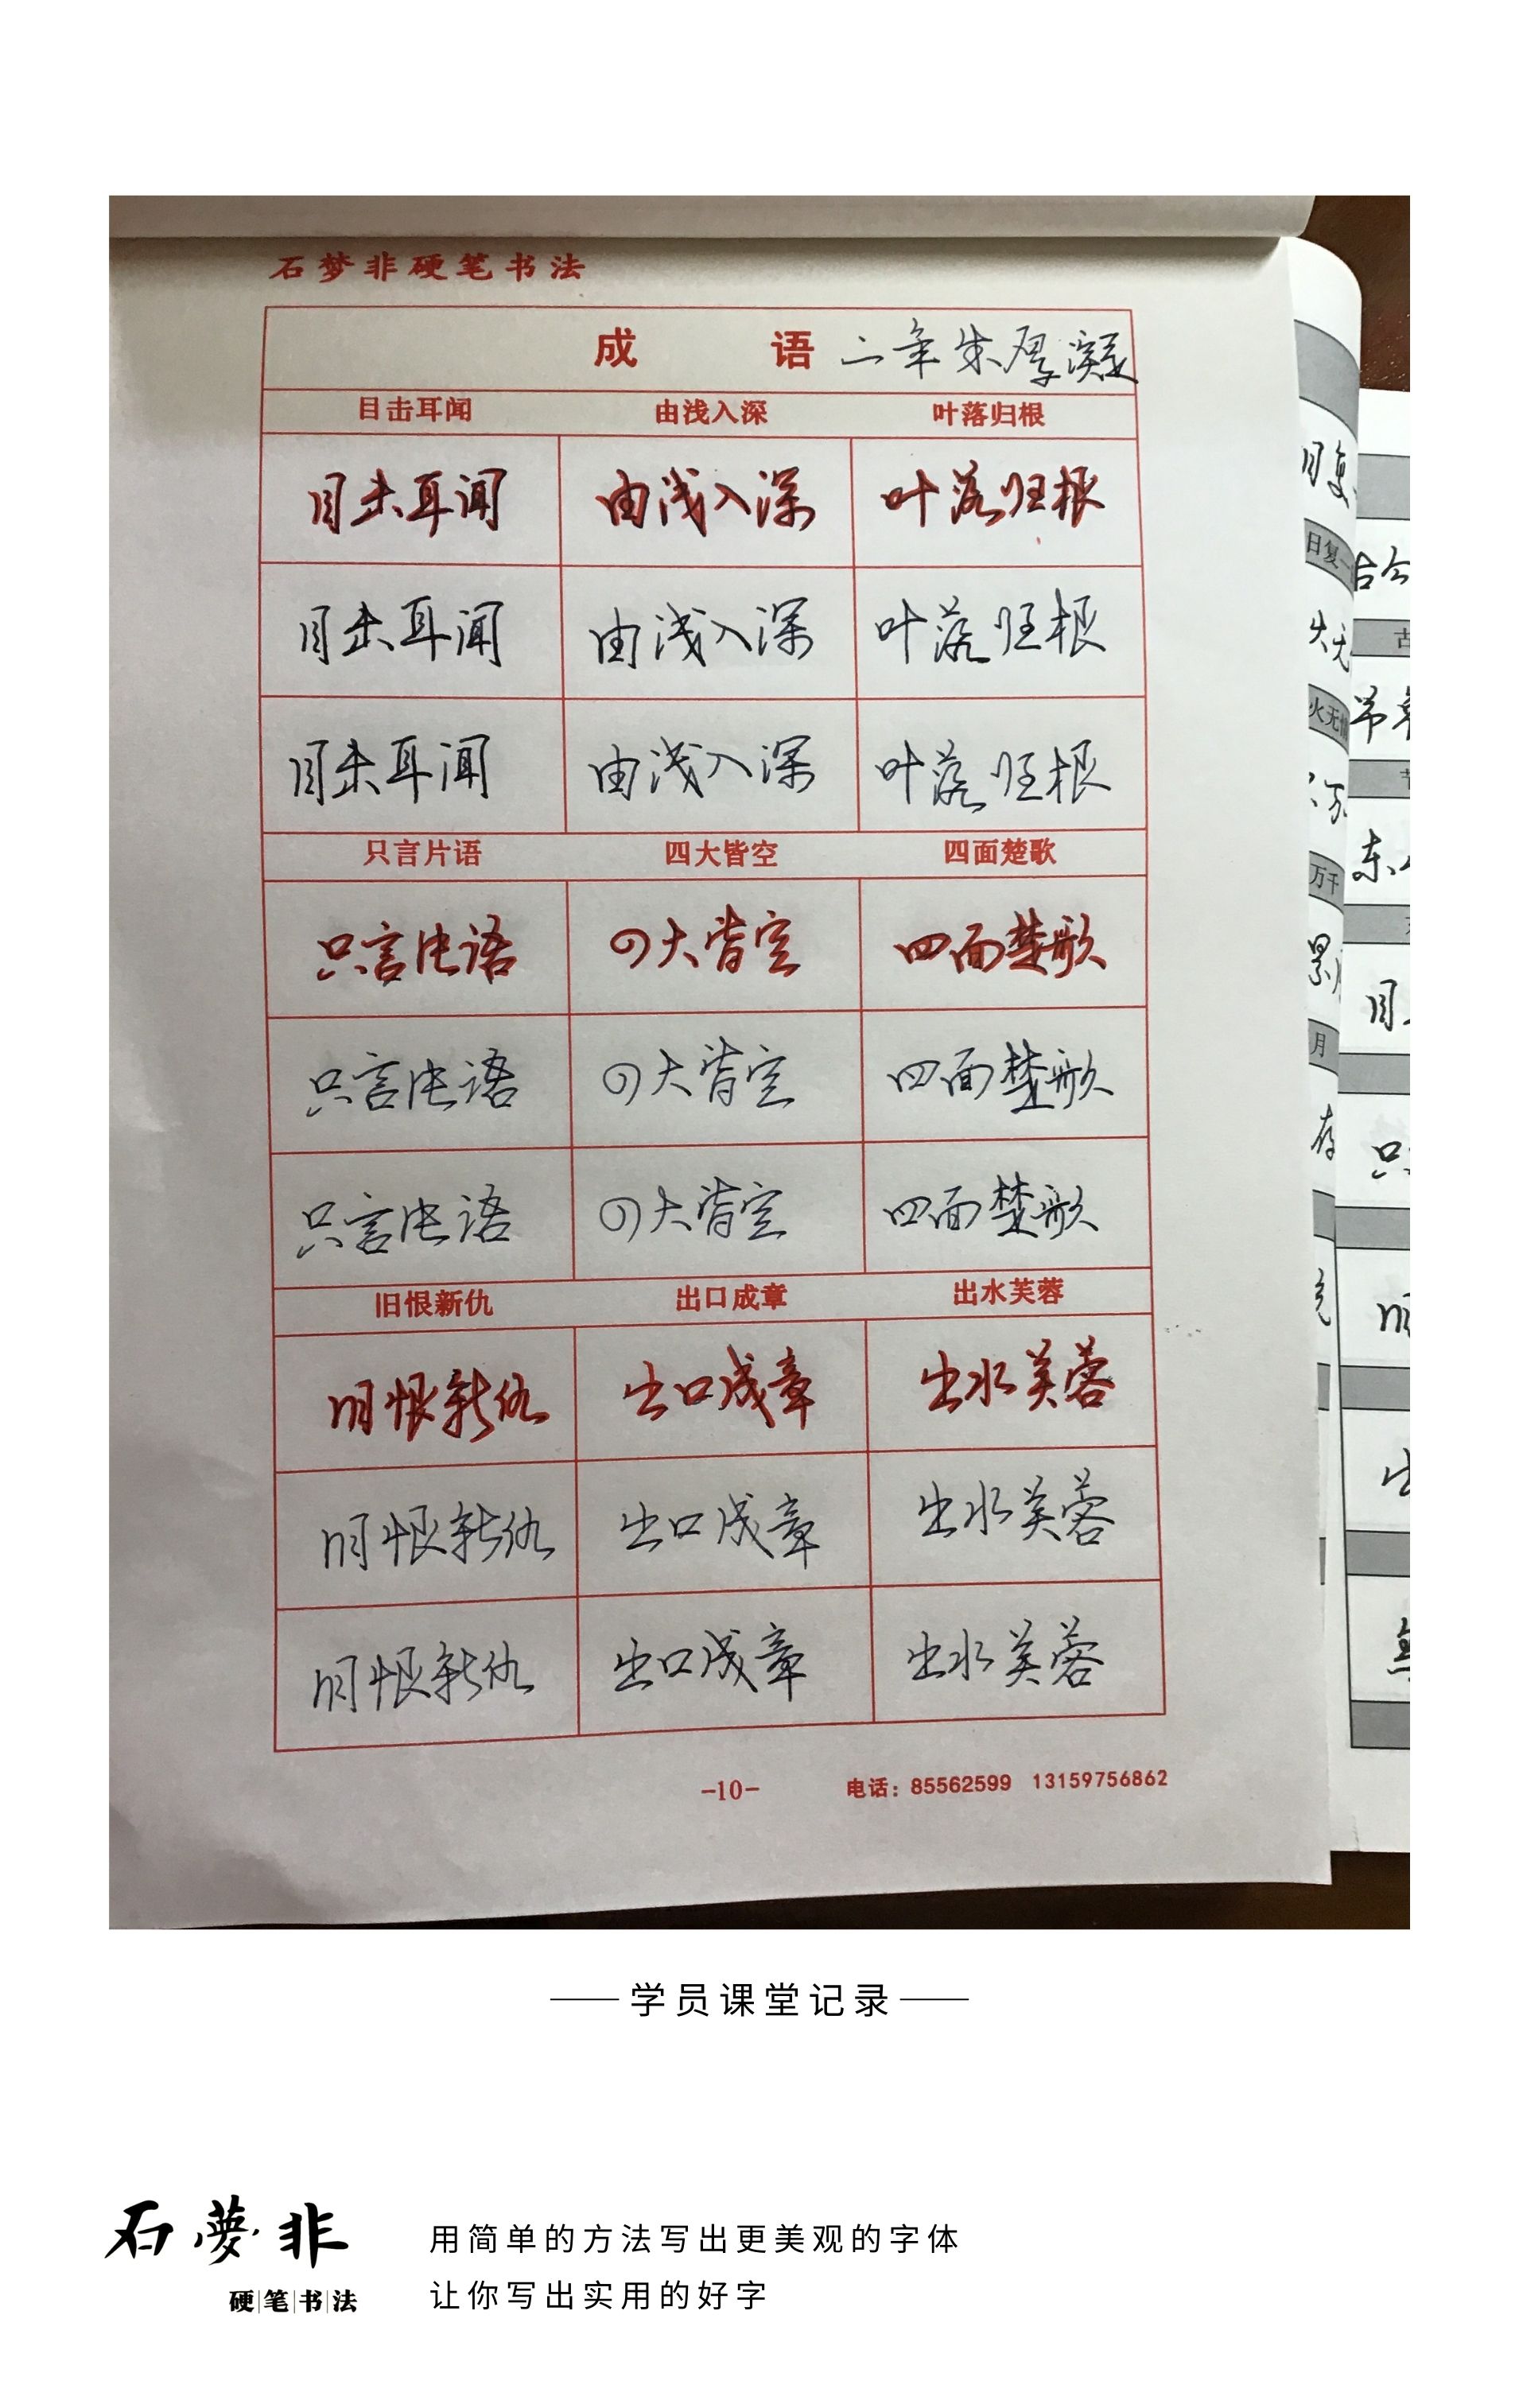 石梦非硬笔书法
成 语 二年朱厚凝
目击耳闻 由浅入深 叶落归根
目击耳闻 由浅入深 叶落归根
目击耳闻 由浅入深 叶落归根
目击耳闻 由浅入深 叶落归根
只言片语 四大皆空 四面楚歌
只言片语 四大皆空 四面楚歌
只言片语 四大皆空 四面楚歌
只言片语 四大皆空 四面楚歌
旧恨新仇 出口成章 出水芙蓉
旧恨新仇 出口成章 出水芙蓉
旧恨新仇 出口成章 出水芙蓉
旧恨新仇 出口成章 出水芙蓉
-10- 电话：85562599 13159756862
日复
日复一
火无
万千
月
古今
学员课堂记录
石夢非
硬笔书法
用简单的方法写出更美观的字体
让你写出实用的好字